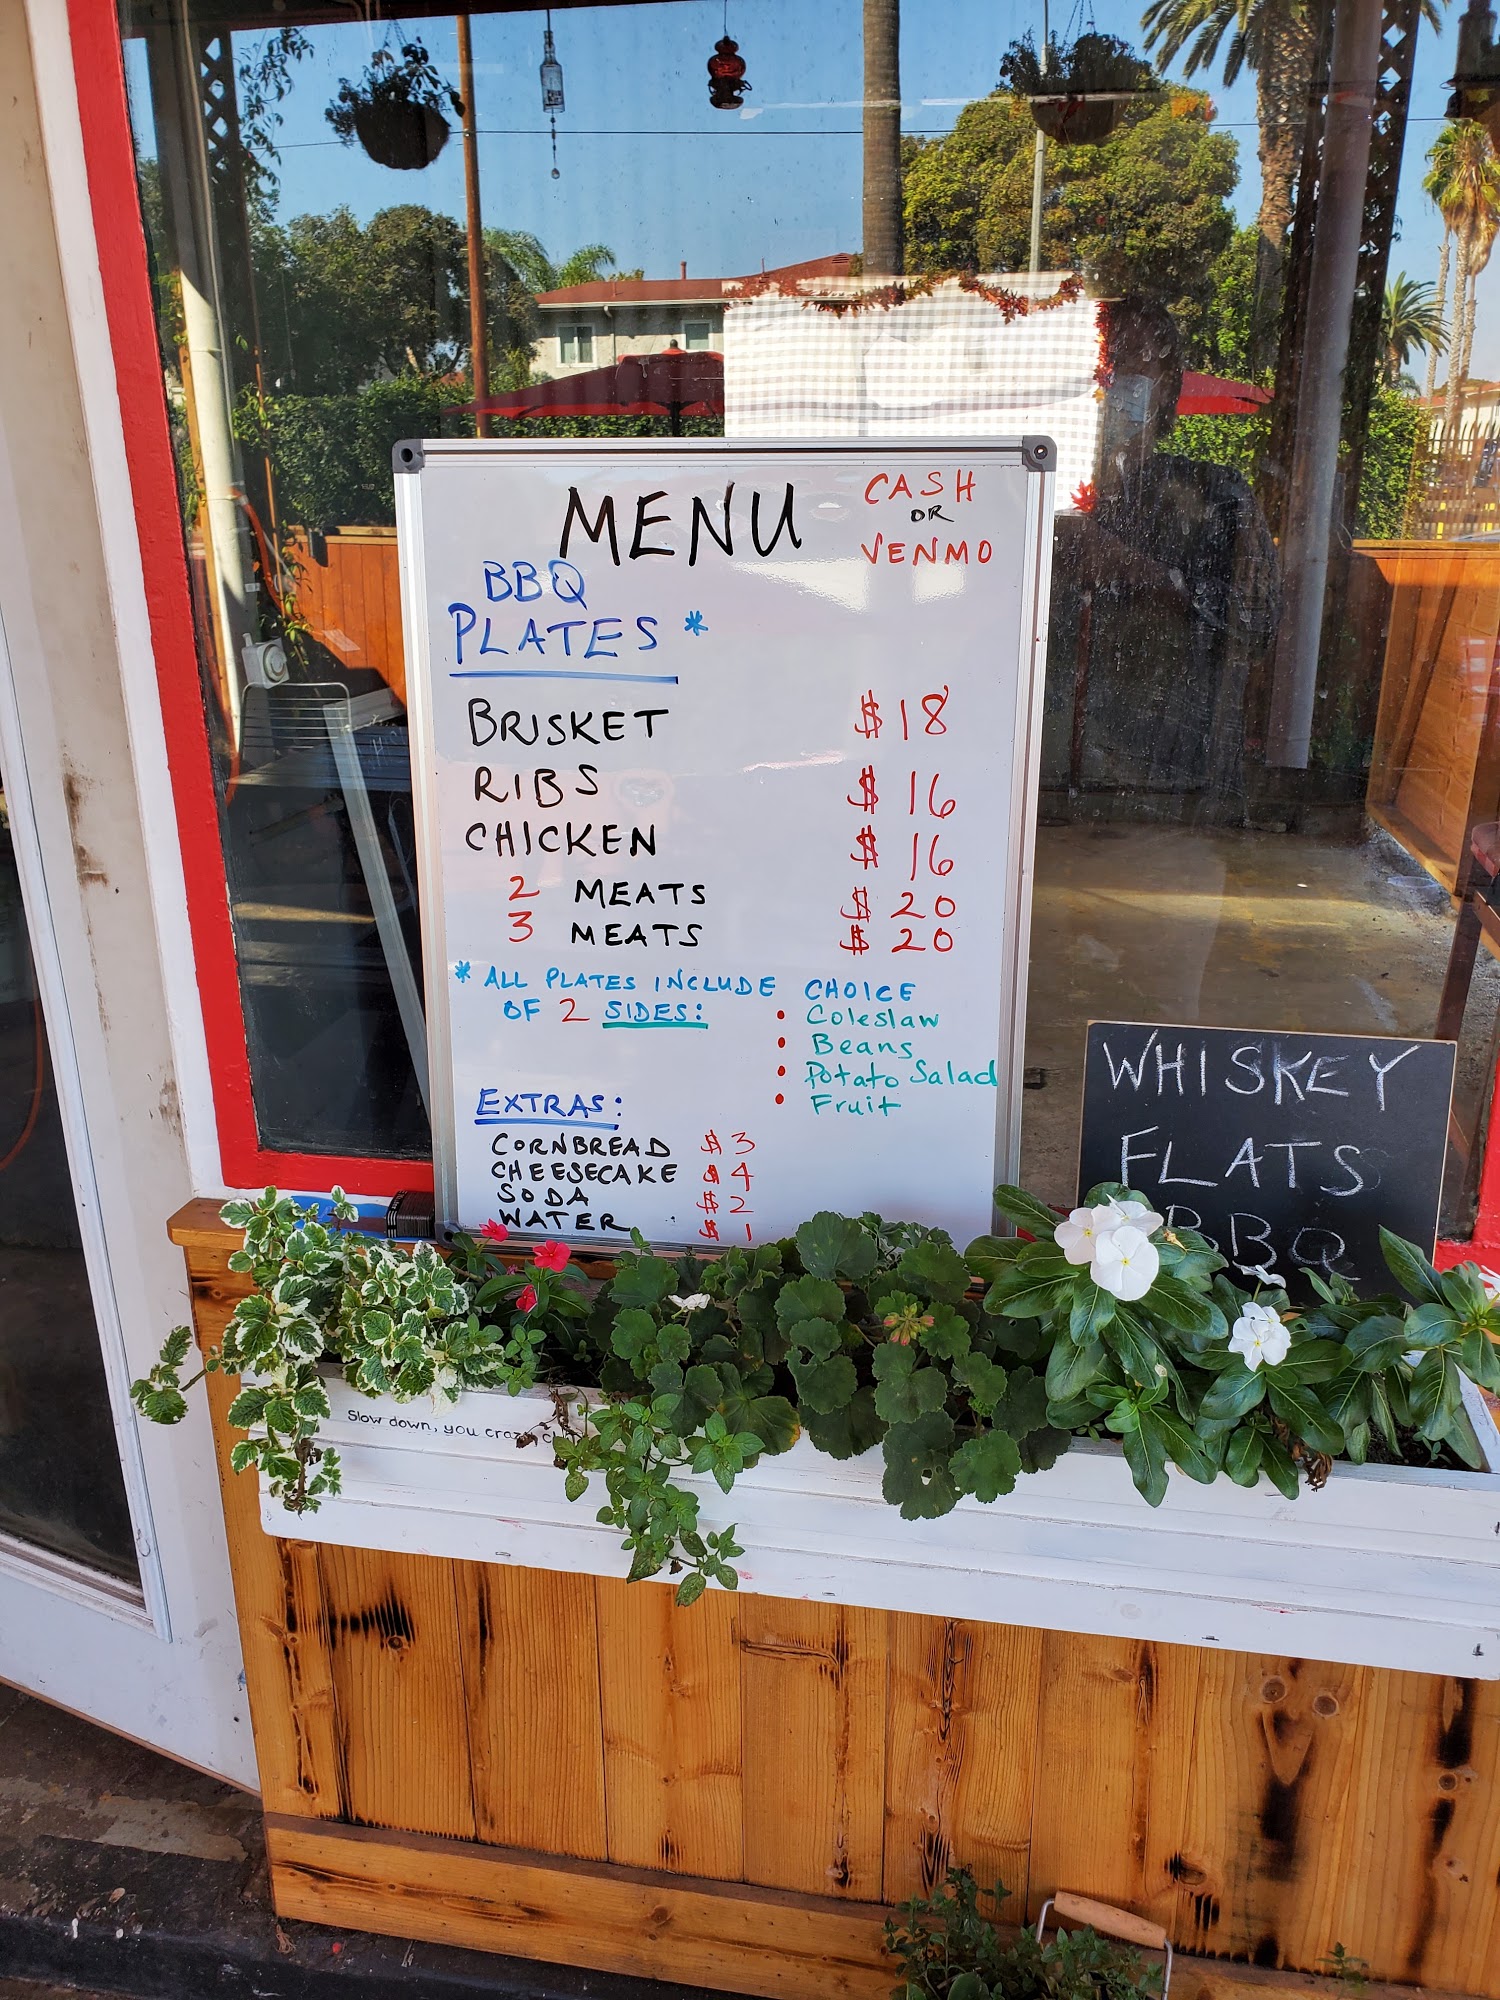 MENU
CASH
OR
VENMO
BBQ
PLATES *
BRISKET $18
RIBS $16
CHICKEN $16
2 MEATS $20
3 MEATS $20
* ALL PLATES INCLUDE CHOICE
OF 2 SIDES:
• Coleslaw
• Beans
• Potato Salad
• Fruit
EXTRAS:
CORNBREAD $3
CHEESECAKE $4
SODA $2
WATER $1
WHISKEY
FLATS
BBQ
Slow down, you crazy